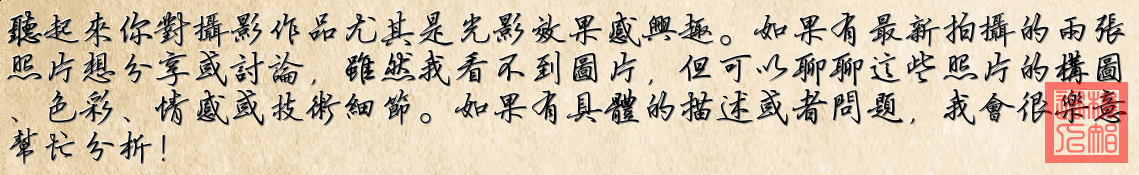 聽起來你對攝影作品尤其是光影效果感興趣。如果有最新拍攝的兩張
照片想分享或討論，雖然我看不到圖片，但可以聊聊這些照片的構圖
、色彩、情感或技術細節。如果有具體的描述或者問題，我會很樂意
幫忙分析！